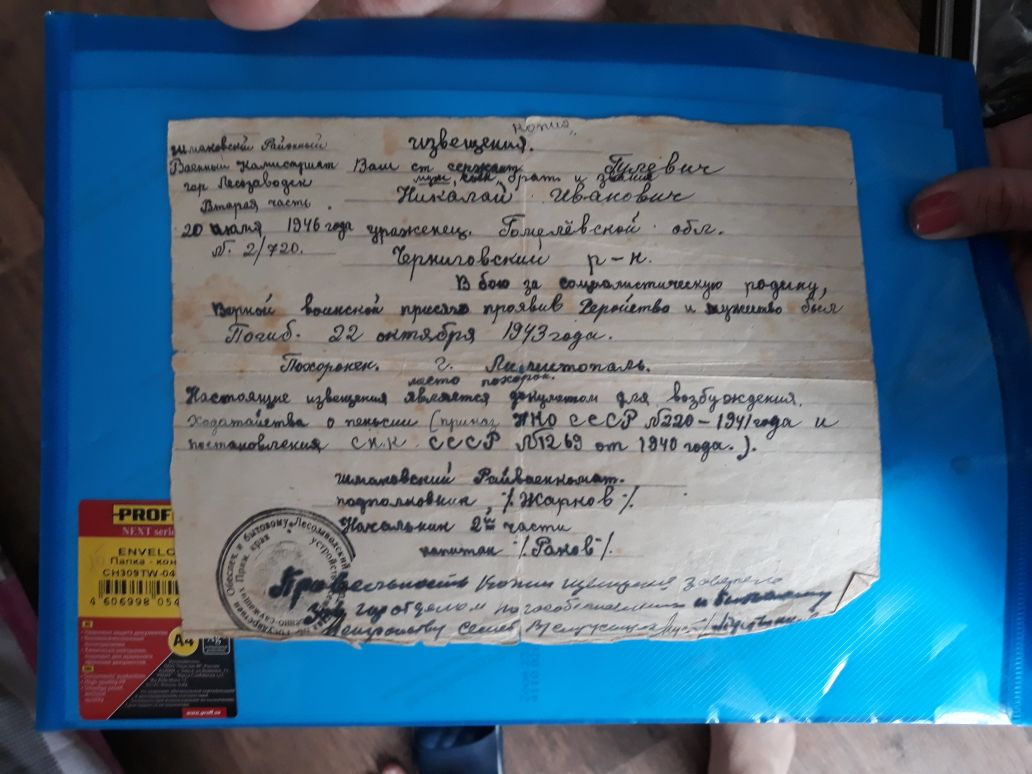 копия
извещения.
шмаковский Районный
Военный Камисарият
гор Лесозаводск
Вторая часть.
20 июля 1946 года
№. 2/720.
Ваш ст сержант Гулевич
муж, сын, брат и звания
Николай Иванович
ураженец. Гомелёвской обл.
Черниговский р-н.
В бою за социалистическую родину,
Верной воинской присяге проявив Геройство и мужество был
Погиб. 22 октября 1943 года.
Похоронен. г.
место похорон.
Настоящие извещения является документом для возбуждения.
Ходатайства о пенсии (приказ НКО СССР №220-1941 года и
постановления с.н.к СССР №1269 от 1940 года.).
шмаковский Райвоенкомат.
подполковник, "/. Жарнов "/.
Начальник 2ой части
капитан "/. Раков "/.
Правельность Копии
гор отделом по гособеспечению и бытовому
устройству семей
Государствен Обеспеч и бытовому
устройств
Лесозаводский
Прим края
PROFF
NEXT series
ENVELO
Папка - кон
CH309TW-04
4 606998 054
A4
www.proff.su